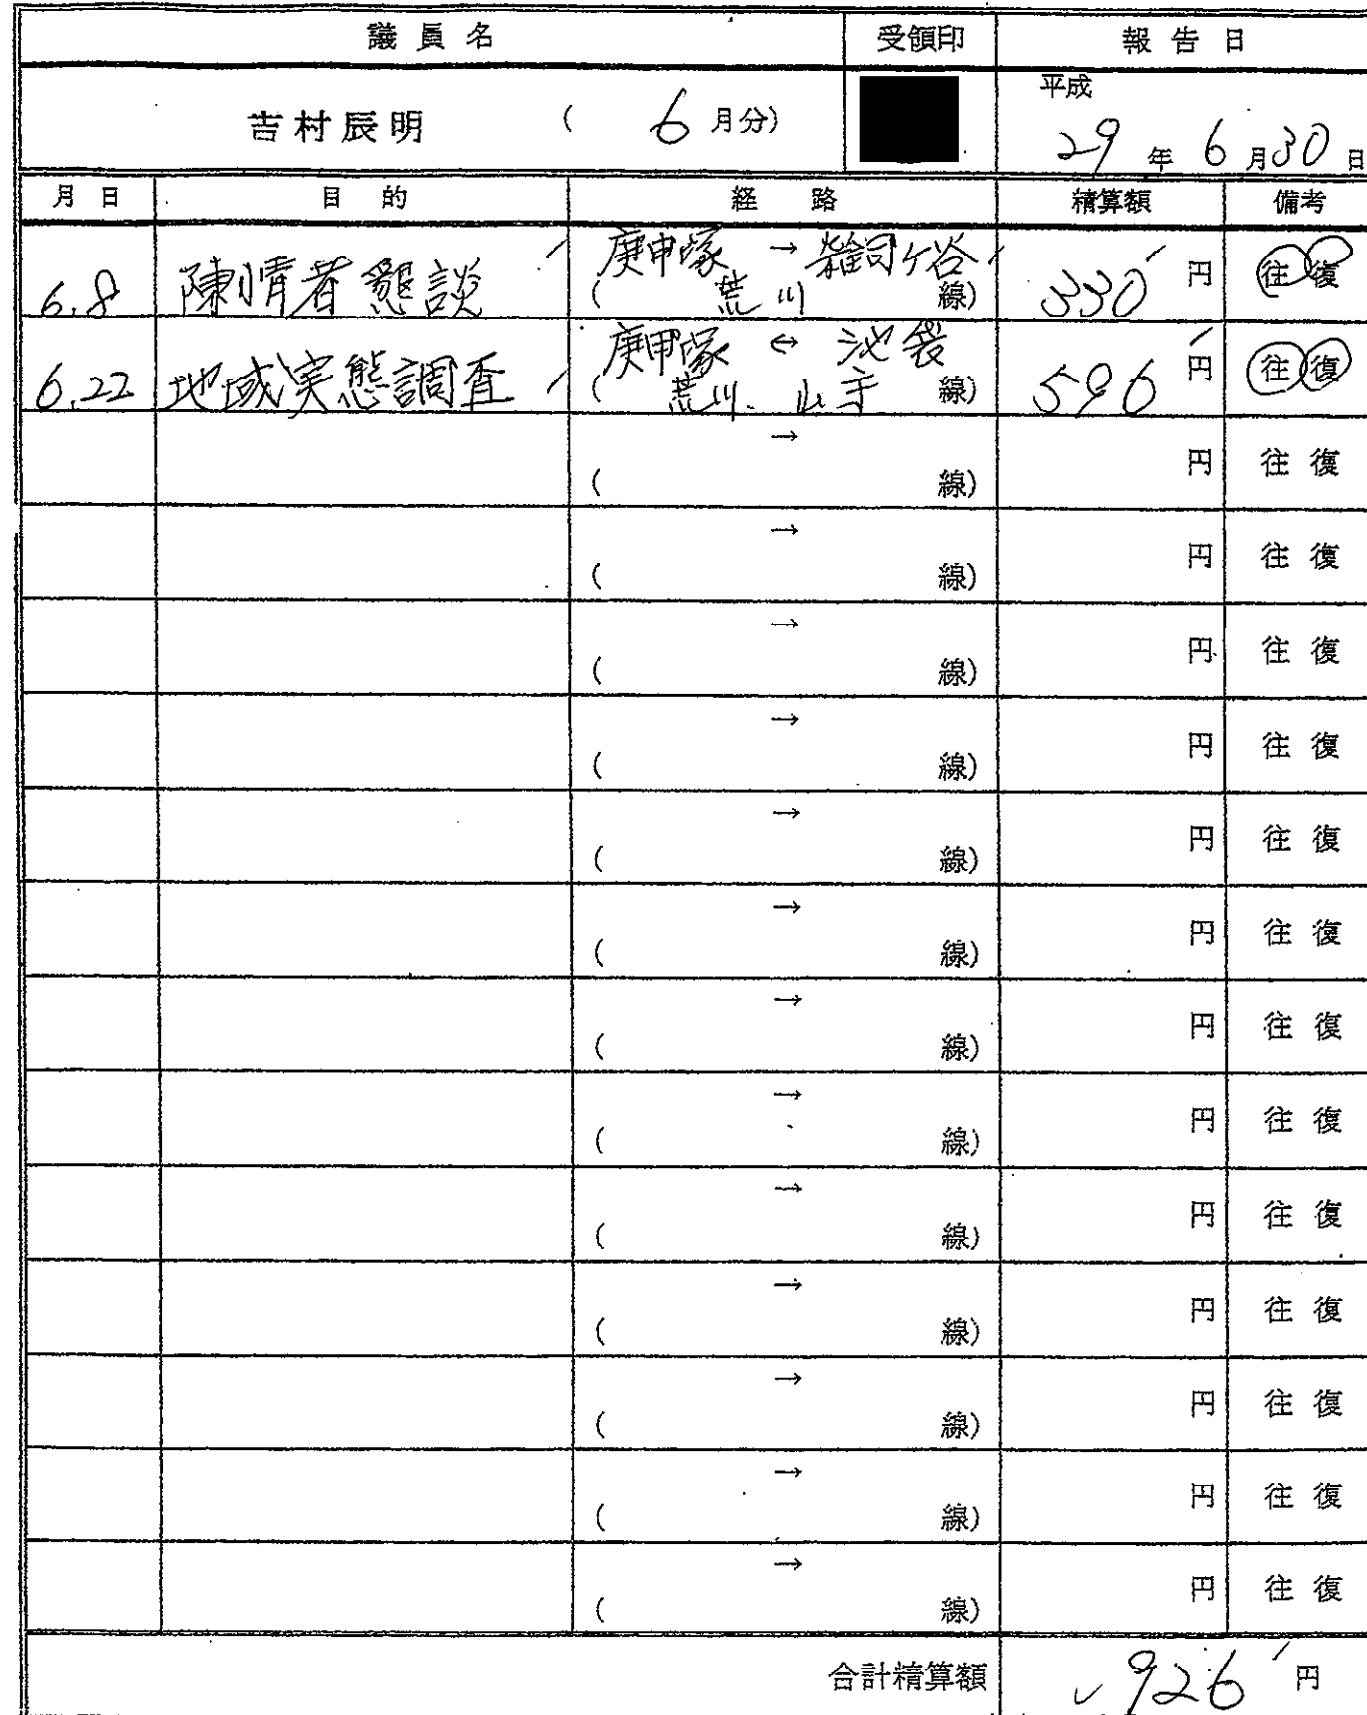 議員名 受領印 報告日
吉村辰明 ( 6 月分) 平成 29 年 6 月 30 日
月日 目的 経路 精算額 備考
6.8 陳情者懇談 庚申塚 → 雑司ケ谷 330 円 往復
( 荒川 線)
6.22 地域実態調査 庚申塚 ↔ 池袋 596 円 往復
( 荒川、山手 線)
→ 円 往復
( 線)
→ 円 往復
( 線)
→ 円 往復
( 線)
→ 円 往復
( 線)
→ 円 往復
( 線)
→ 円 往復
( 線)
→ 円 往復
( 線)
→ 円 往復
( 線)
→ 円 往復
( 線)
→ 円 往復
( 線)
→ 円 往復
( 線)
→ 円 往復
( 線)
→ 円 往復
( 線)
合計精算額 926 円